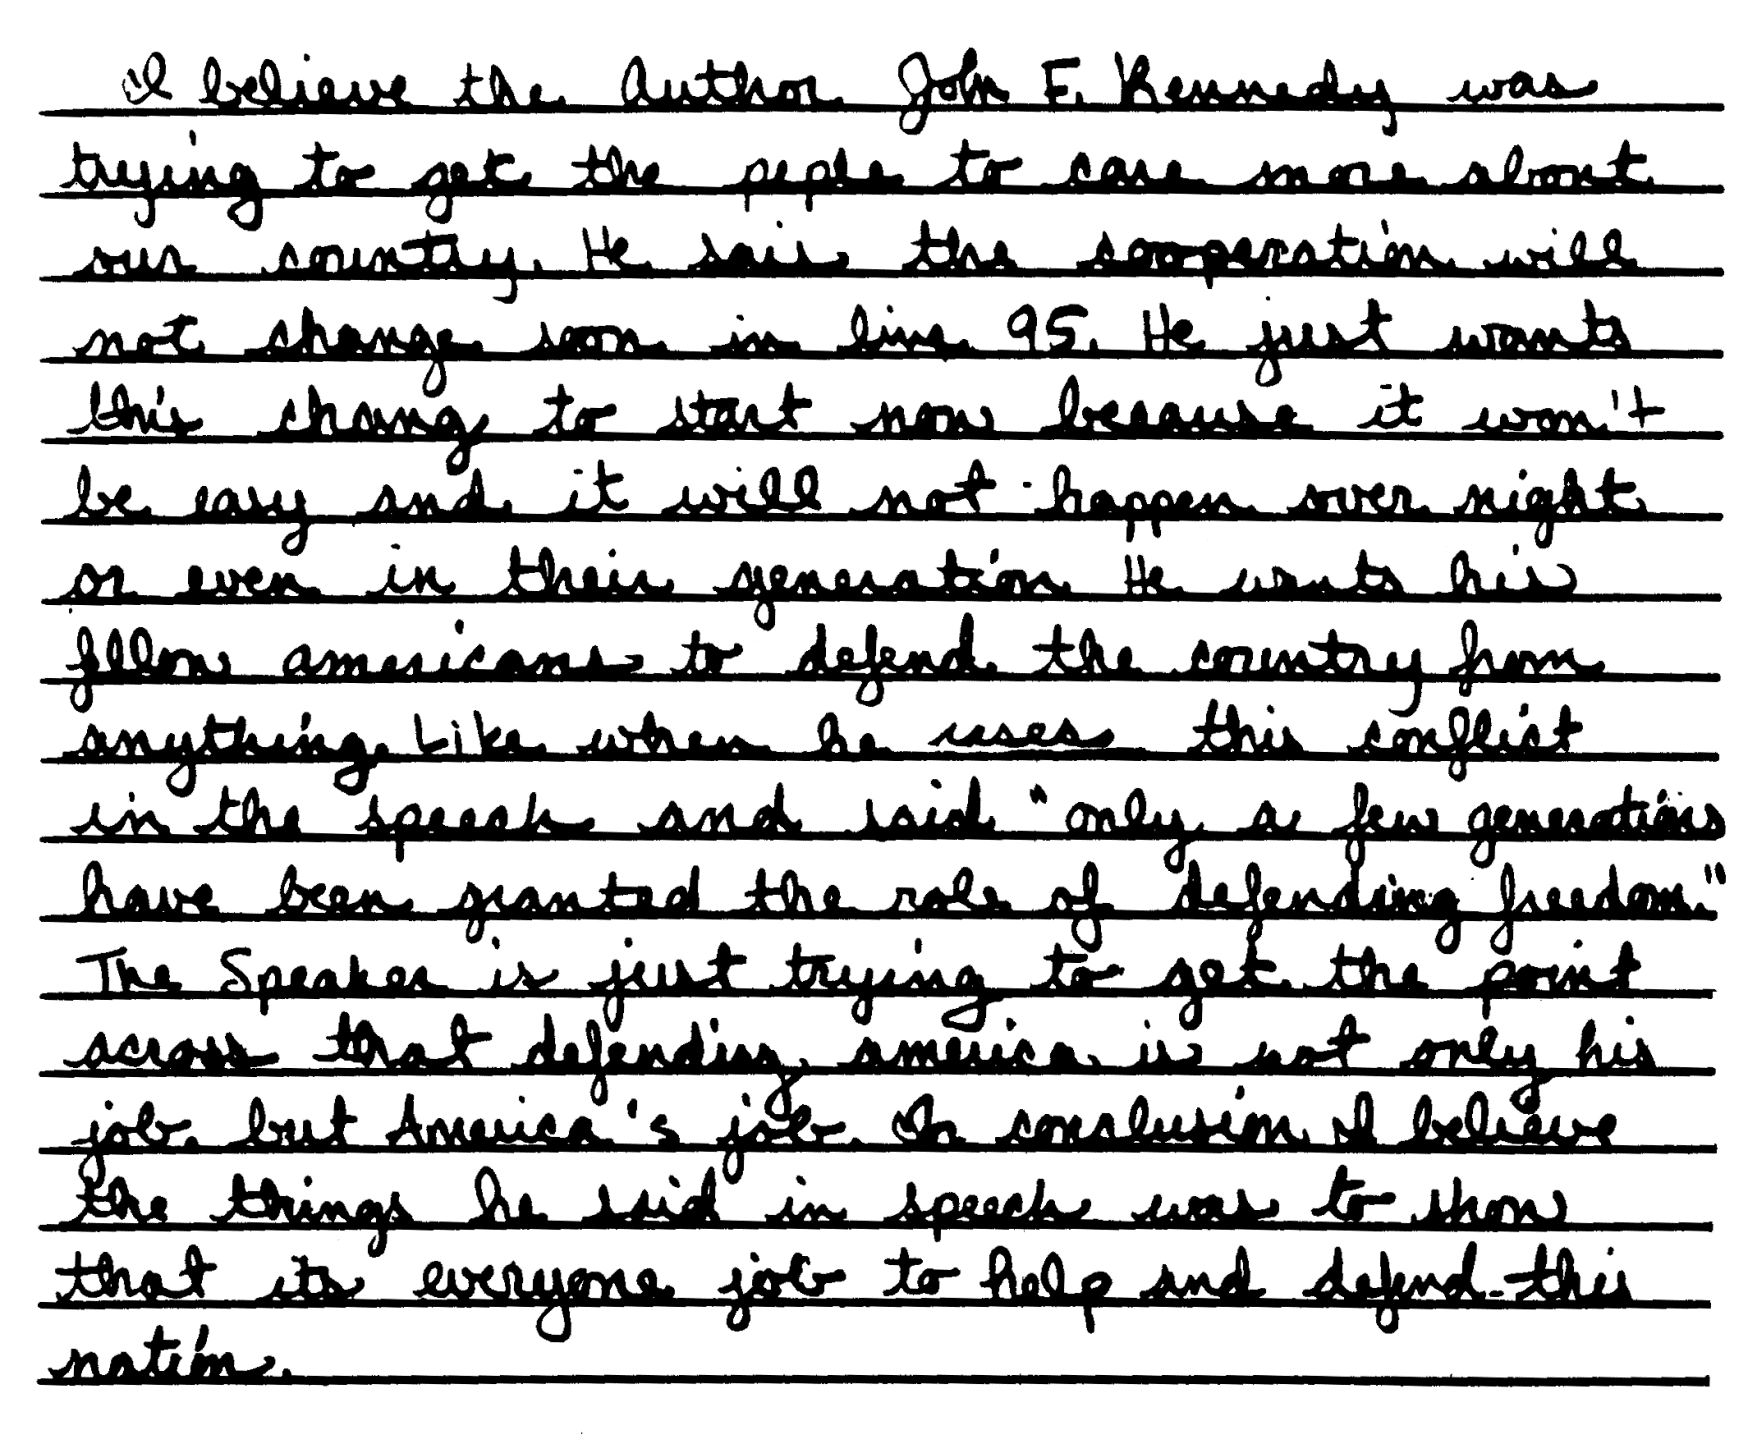 I believe the Author John F. Kennedy was
trying to get the peple to care more about
our country. He sais the cooperation will
not change soon in line 95. He just wants
this chang to start now because it won't
be easy and it will not happen over night
or even in their generation. He wants his
fellow americans to defend the country from
anything. Like when he uses this conflict
in the speech and said "only a few generations
have been granted the role of defending freedom."
The Speaker is just trying to get the point
across that defending america is not only his
job, but America's job. In conclusion, I believe
the things he said in speech was to show
that its everyone job to help and defend this
nation.